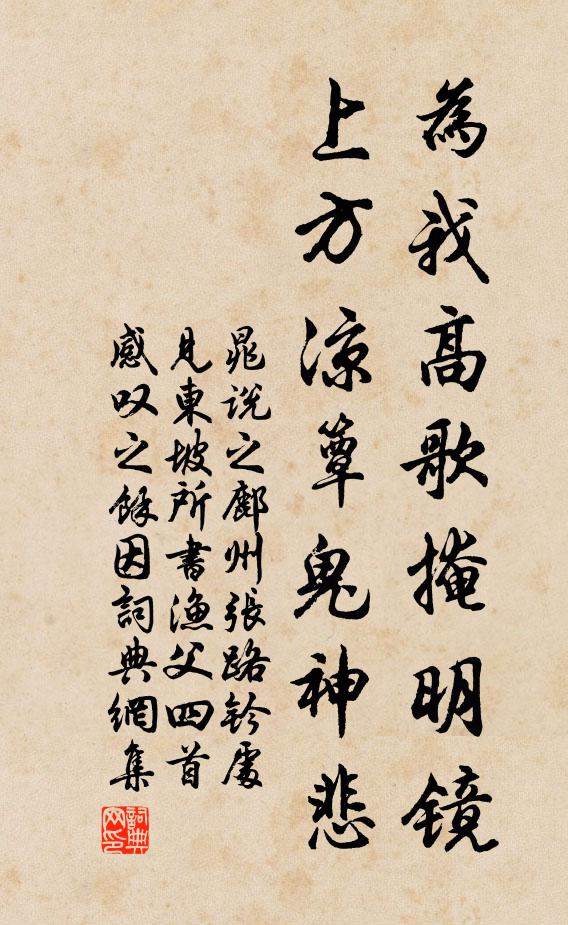 為我高歌掩明鏡
上方凉簟鬼神悲
晁说之鄜州張路鈐處
見東坡所書漁父四首
感叹之餘因詞典網集
詞典网印